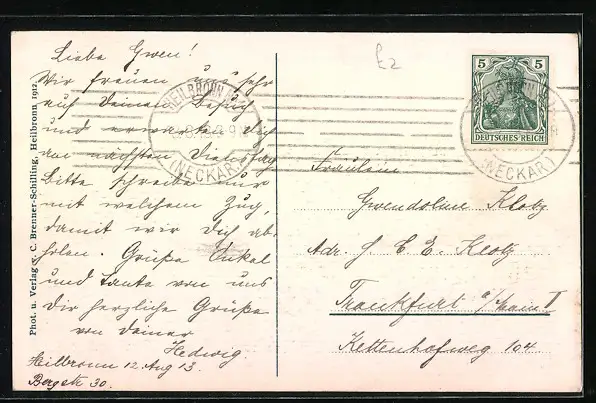 Liebe Gwen!
Wir freuen uns sehr
auf deinen Besuch
und erwarten dich
am nächsten Dienstag
Bitte schreibe nur
mit welchem Zug,
damit wir dich ab
holen. Grüße Onkel
und Tante von uns
Dir herzliche Grüße
von deiner
Hedwig
Heilbronn 12 Aug 13.
Bergstr 30.
Phot. u. Verlag v. C. Brenner-Schilling, Heilbronn, 1912.
HEILBRONN
(NECKAR)
£2
5 5
DEUTSCHES REICH
HEILBRONN
(NECKAR)
Fräulein
Gwendoline Klotz
Adr. H. C. E. Klotz
Frankfurt a/Main II
Kettenhofweg 104